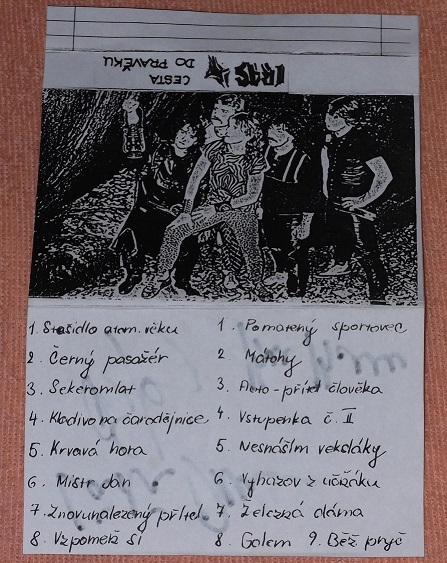 CESTA
DO PRAVĚKU
1. Strašidlo atom. věku
2. Černý pasažér
3. Sekeromlat
4. Kladivo na čarodějnice
5. Krvavá hora
6. Mistr dan
7. Znovunalezený přítel
8. Vzpomeň si
1. Pomatený sportovec
2. Mátohy
3. Auto - přítel člověka
4. Vstupenka č. II
5. Nesnáším
6. Vyhazov z učňáku
7. Železná dáma
8. Golem 9. Běž pryč